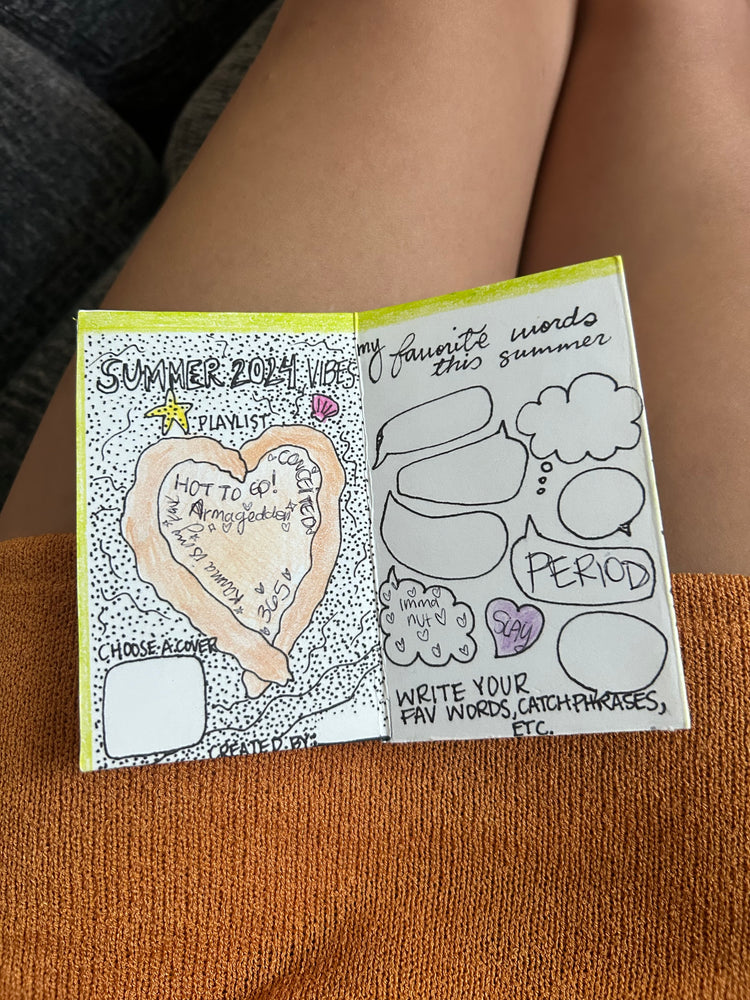 SUMMER 2024 VIBES
PLAYLIST
CONCEITED
HOT TO GO!
Armageddon
Karma is my bf
365
CHOOSE A COVER
CREATED BY:
my favorite words
this summer
PERIOD
Imma
nut
SLAY
WRITE YOUR
FAV WORDS, CATCHPHRASES,
ETC.